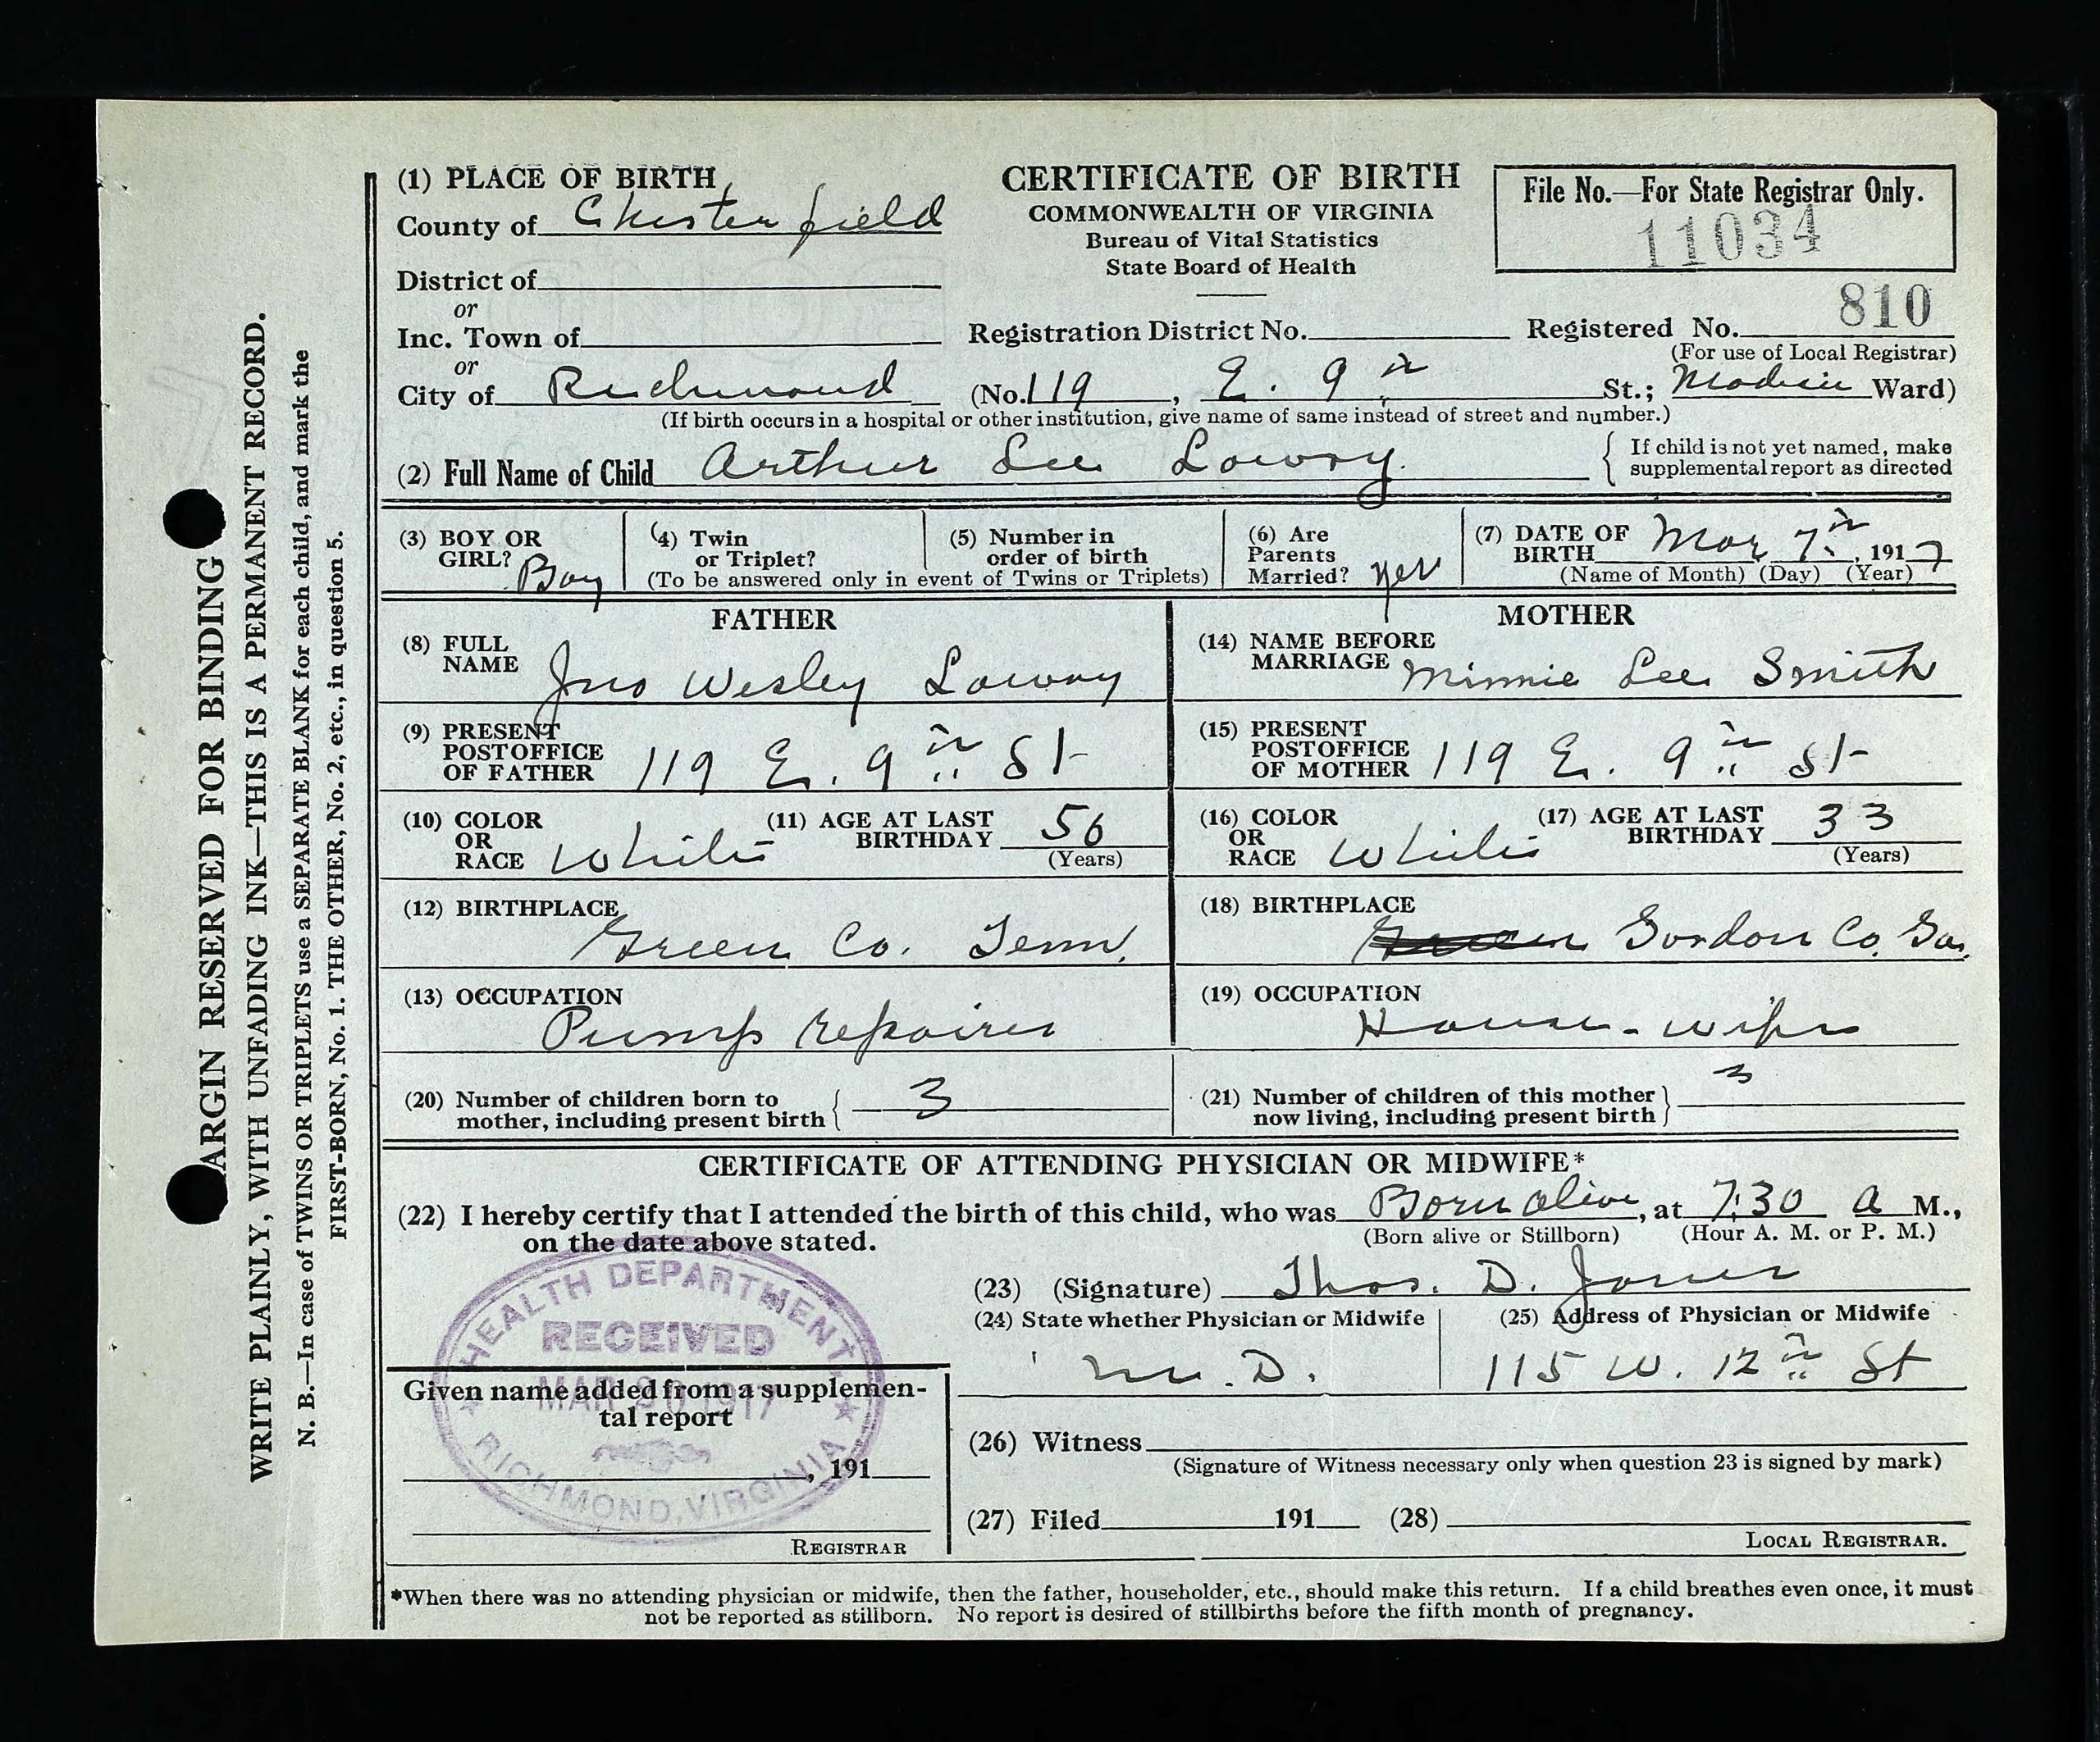 (1) PLACE OF BIRTH
County of Chesterfield
District of
or
Inc. Town of
or
City of Richmond
CERTIFICATE OF BIRTH
COMMONWEALTH OF VIRGINIA
Bureau of Vital Statistics
State Board of Health
File No.—For State Registrar Only.
11034
Registration District No.
Registered No. 810
(For use of Local Registrar)
(No. 119, E. 9th St.; Ward)
(If birth occurs in a hospital or other institution, give name of same instead of street and number.)
(2) Full Name of Child Arthur Lee Lowry.
{ If child is not yet named, make
supplemental report as directed
(3) BOY OR
GIRL? Boy
(4) Twin
or Triplet?
(5) Number in
order of birth
(To be answered only in event of Twins or Triplets)
(6) Are
Parents
Married? yes
(7) DATE OF
BIRTH Mar 7th, 1917
(Name of Month) (Day) (Year)
FATHER
(8) FULL
NAME Jno Wesley Lowry
(9) PRESENT
POSTOFFICE
OF FATHER 119 E. 9th St
(10) COLOR
OR
RACE White
(11) AGE AT LAST
BIRTHDAY 56
(Years)
(12) BIRTHPLACE
Green Co. Tenn.
(13) OCCUPATION
Pump repairer
MOTHER
(14) NAME BEFORE
MARRIAGE Minnie Lee Smith
(15) PRESENT
POSTOFFICE
OF MOTHER 119 E. 9th St
(16) COLOR
OR
RACE White
(17) AGE AT LAST
BIRTHDAY 33
(Years)
(18) BIRTHPLACE
Gordon Co. Ga.
(19) OCCUPATION
House-wife
(20) Number of children born to
mother, including present birth { 3
(21) Number of children of this mother
now living, including present birth } 3
CERTIFICATE OF ATTENDING PHYSICIAN OR MIDWIFE*
(22) I hereby certify that I attended the birth of this child, who was Born alive, at 7:30 a M.,
on the date above stated.
(Born alive or Stillborn) (Hour A. M. or P. M.)
(23) (Signature) Thos. D. Jones
(24) State whether Physician or Midwife
M.D.
(25) Address of Physician or Midwife
115 W. 12th St
HEALTH DEPARTMENT
RECEIVED
MAR 20 1917
RICHMOND, VIRGINIA
Given name added from a supplemen-
tal report
, 191
REGISTRAR
(26) Witness
(Signature of Witness necessary only when question 23 is signed by mark)
(27) Filed 191 (28)
LOCAL REGISTRAR.
*When there was no attending physician or midwife, then the father, householder, etc., should make this return. If a child breathes even once, it must
not be reported as stillborn. No report is desired of stillbirths before the fifth month of pregnancy.
ARGIN RESERVED FOR BINDING
WRITE PLAINLY, WITH UNFADING INK—THIS IS A PERMANENT RECORD.
N. B.—In case of TWINS OR TRIPLETS use a SEPARATE BLANK for each child, and mark the
FIRST-BORN, No. 1. THE OTHER, No. 2, etc., in question 5.